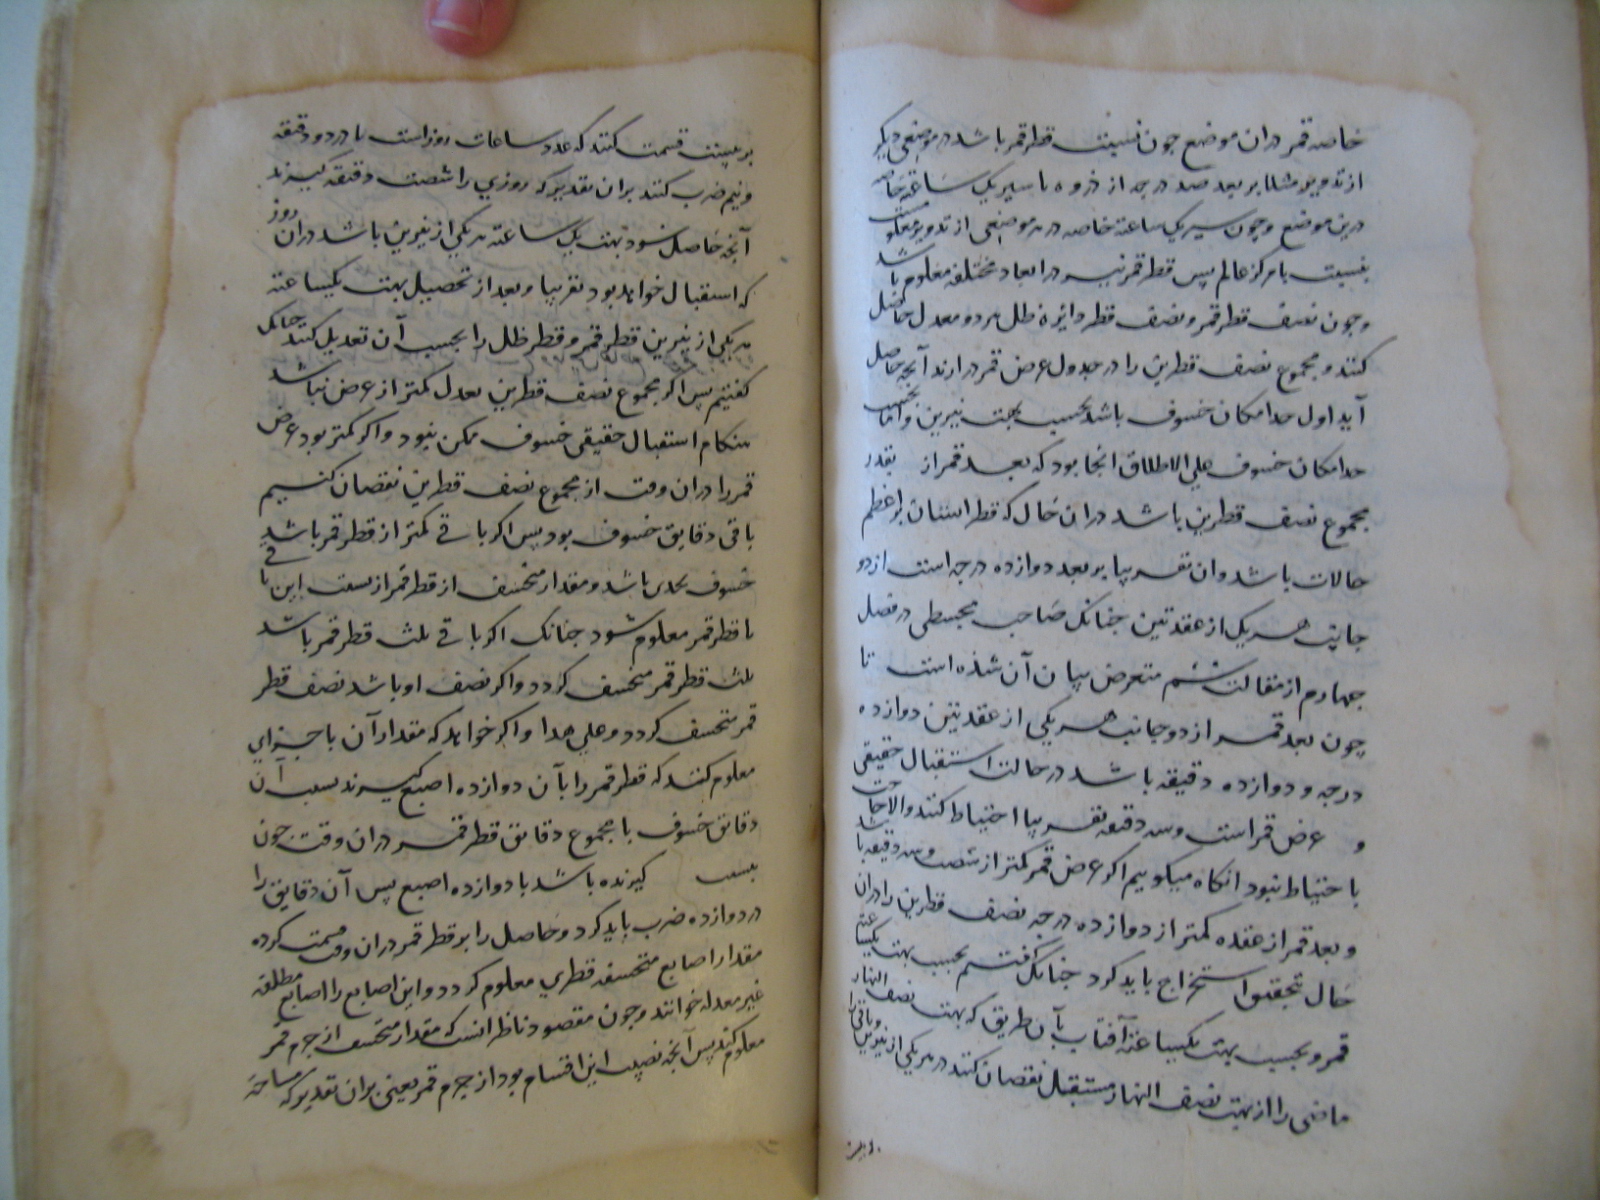 خاصه قمر دران موضع چون نسبت قطر قمر باشد در موضعی دیگر
از تدویر مثلا بر بعد صد درجه از ذروه با سیر یک ساعته خاصه
درین موضع وچون سیر یک ساعته خاصه در هر موضعی از تدویر معلومست
بنسبت با مرکز عالم پس قطر قمر نیز در ابعاد مختلفه معلوم باشد
وچون نصف قطر قمر ونصف قطر دایره ظل هر دو معدل حاصل
کنند ومجموع نصف قطرین را در جدول عرض قمر درارند آنچه حاصل
آید اول حد امکان خسوف باشد بحسب بهت نیرین واما بحسب
حد امکان خسوف علی الاطلاق انجا بود که بعد قمر از بقدر
مجموع نصف قطرین باشد دران حال که قطر ایشان بر اعظم
حالات باشد وان تقریبا بر بعد دوازده درجه است از دو
جانب هر یک از عقدتین چنانک صاحب مجسطی در فصل
چهارم از مقالت ششم متعرض بیان آن شده است تا
چون بعد قمر از دو جانب هر یکی از عقدتین دوازده
درجه و دوازده دقیقه باشد در حالت استقبال حقیقی
و عرض قمر است وسه دقیقه تقریبا احتیاط کنند والا حاجت
باحتیاط نبود انکاه میکوییم اکر عرض قمر کمتر از شصت وسه دقیقه باشد
وبعد قمر از عقده کمتر از دوازده درجه نصف قطرین را دران
حال تحقیق استخراج باید کرد چنانک گفتیم بحسب بهت یکساعته
قمر و بحسب بهت یکساعته آفتاب بآن طریق که بهت نصف النهار
ماضی را از بهت نصف النهار مستقبل نقصان کنند در هر یکی از نیرین وباقی را
بر بیست قسمت کنند که عدد ساعات روز است یا در دو دقیقه
ونیم ضرب کنند بران تقدیر که روزی را شصت دقیقه گیرند
آنچه حاصل شود بهت یک ساعته هر یکی از نیرین باشد دران روز
که استقبال خواهد بود تقریبا وبعد از تحصیل بهت یکساعته
هر یکی از نیرین قطر قمر وقطر ظل را بحسب آن تعدیل کنند چنانک
کفتیم پس اکر مجموع نصف قطرین معدل کمتر از عرض نباشد
هنکام استقبال حقیقی خسوف ممکن نبود واکر کمتر بود عرض
قمر را دران وقت از مجموع نصف قطرین نقصان کنیم
باقی دقایق خسوف بود پس اکر باقی کمتر از قطر قمر باشد
خسوف بحدی باشد ومقدار منخسف از قطر قمر از نسبت این باقی
با قطر قمر معلوم شود چنانک اکر باقی ثلث قطر قمر باشد
ثلث قطر قمر منخسف کردد واکر نصف او باشد نصف قطر
قمر منخسف کردد وعلی هذا واکر خواهد که مقدار آن باجزای
معلوم کنند که قطر قمر را بآن دوازده اصبع گیرند نسبت آن
دقایق خسوف با مجموع دقایق قطر قمر دران وقت چون
نسبت گیرنده باشد با دوازده اصبع پس آن دقایق را
در دوازده ضرب باید کرد وحاصل را بر قطر قمر دران وقت قسمت کرده
مقدار اصابع منخسفه قطری معلوم کردد واین اصابع را اصابع مطلقه
غیر معدله خوانند وچون مقصود ناظر انست که مقدار منخسف از جرم قمر
معلوم کند پس آنچه نصیب این اقسام بود از جرم قمر یعنی بران تقدیر که مساحة